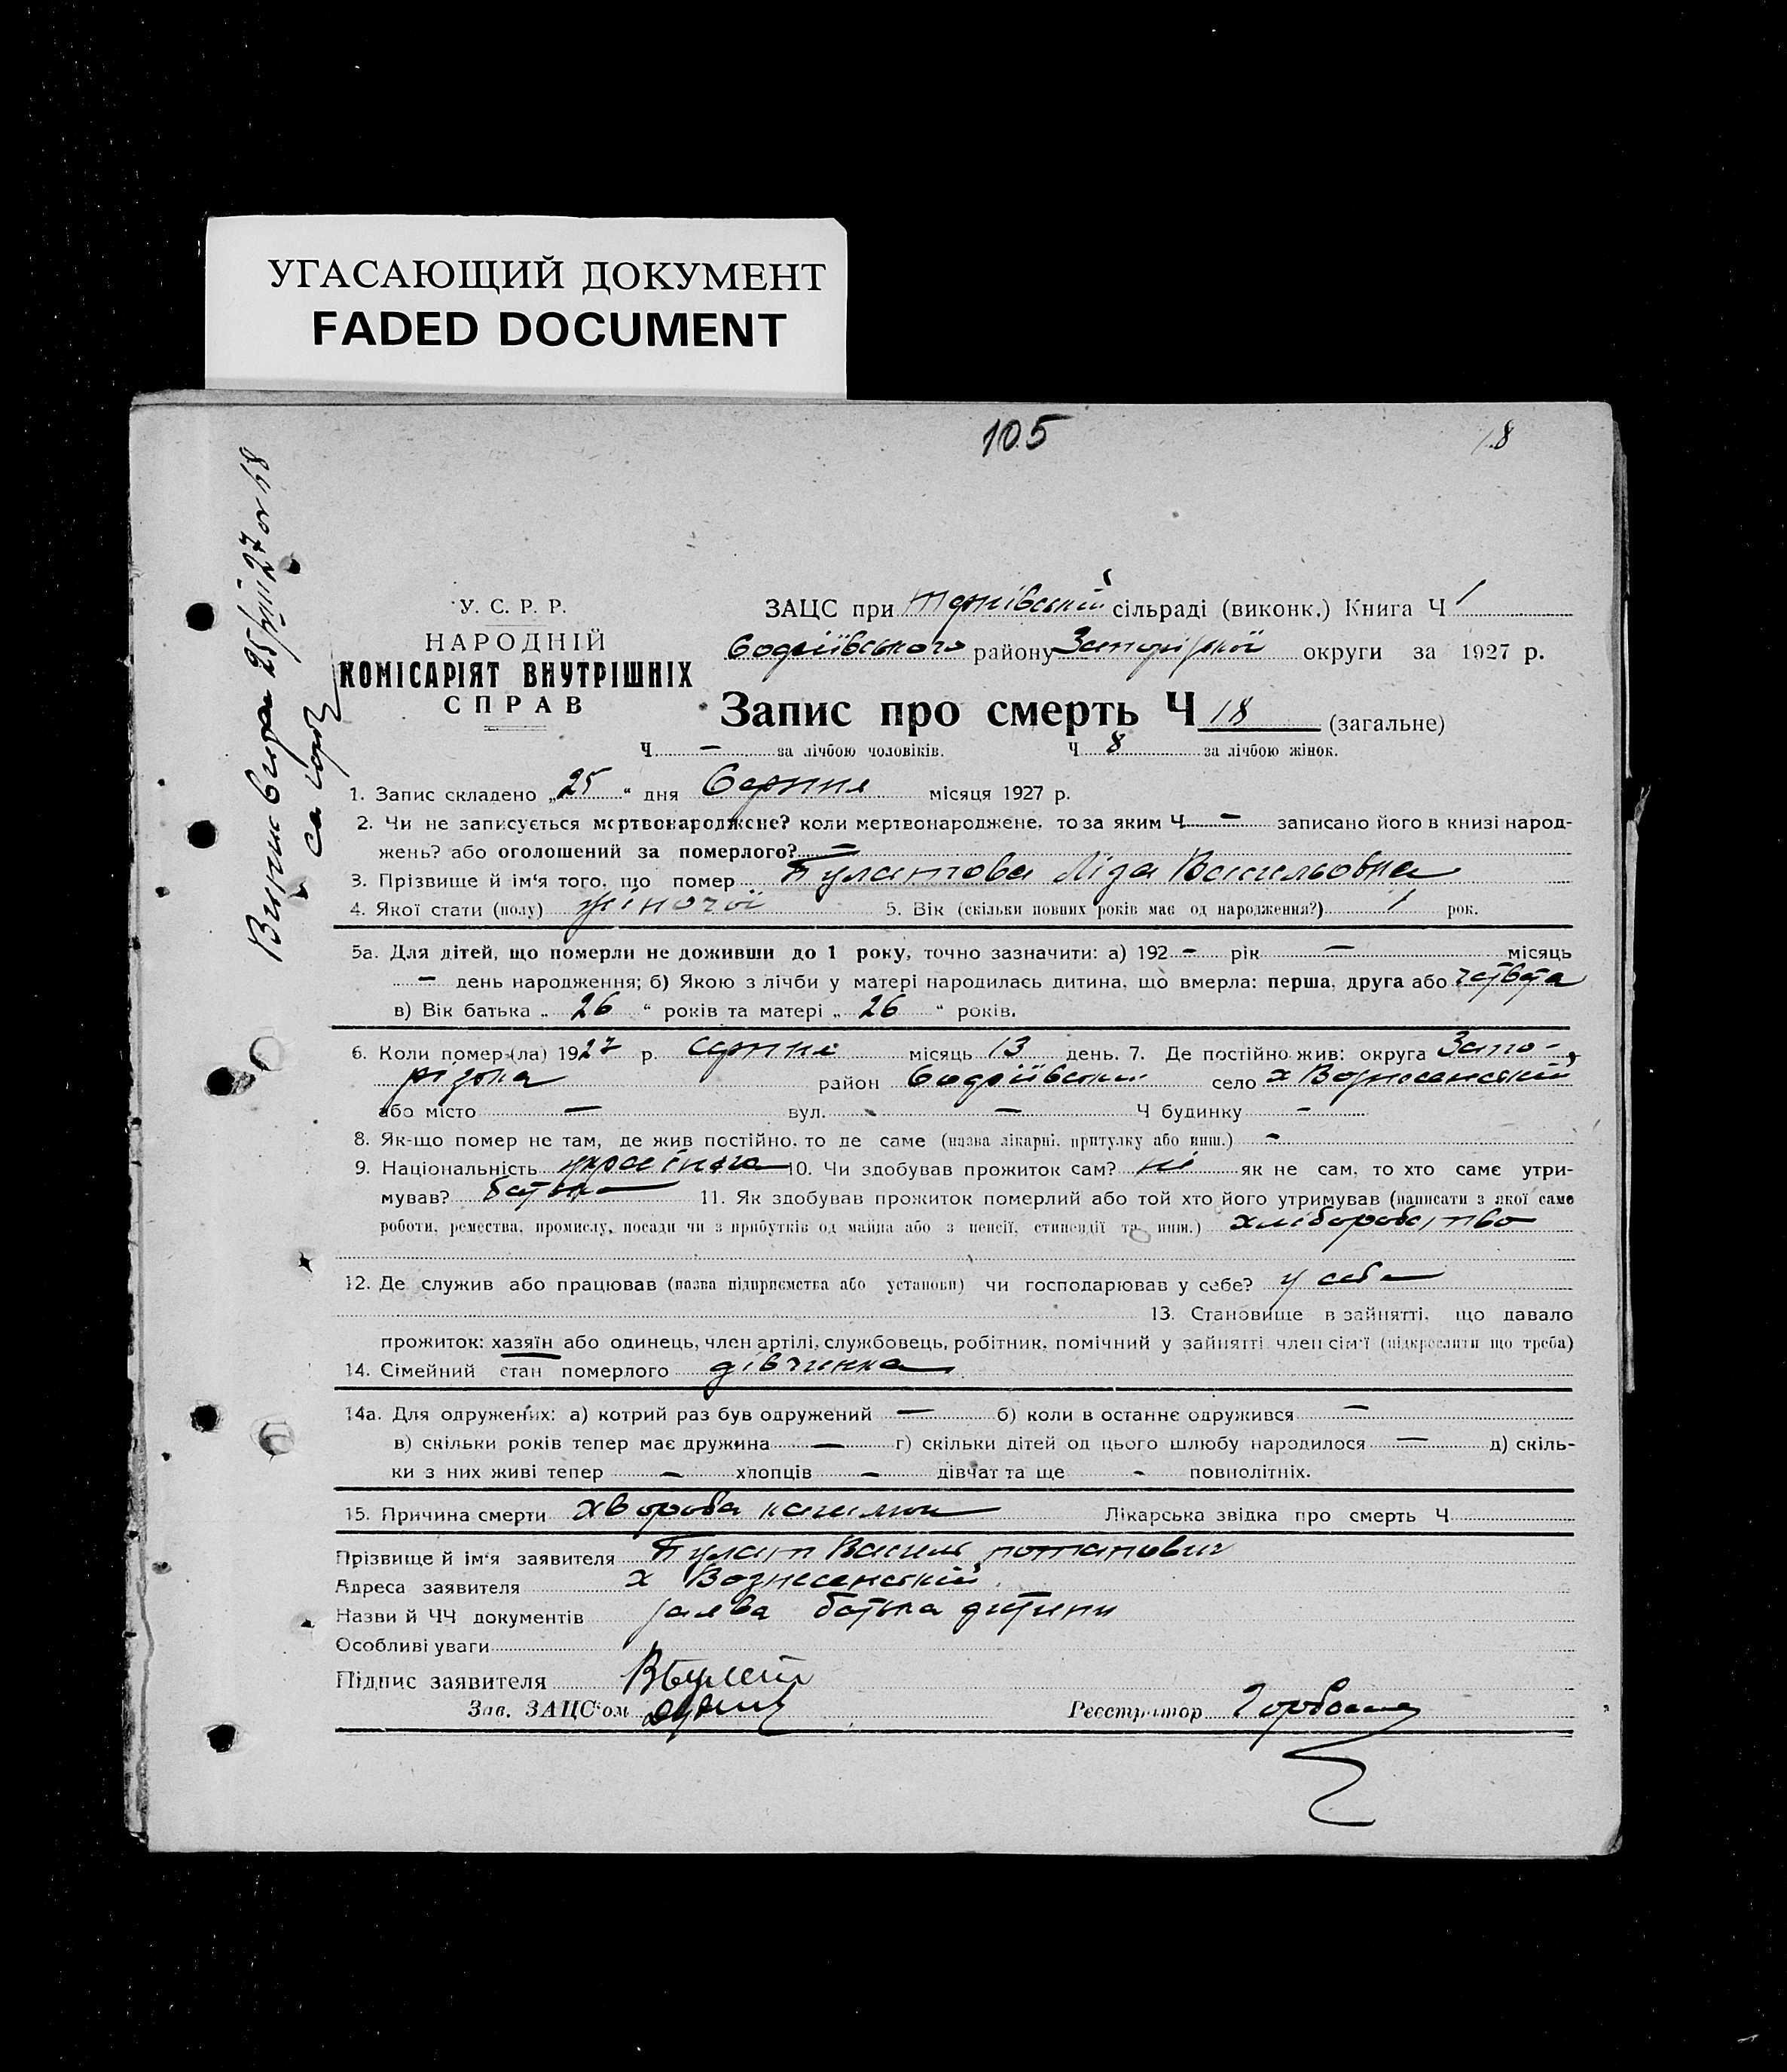 УГАСАЮЩИЙ ДОКУМЕНТ
FADED DOCUMENT
105
18
У. С. Р. Р.
НАРОДНІЙ
КОМІСАРІЯТ ВНУТРІШНІХ
СПРАВ
ЗАЦС при сільраді (виконк.) Книга Ч 1
району округи за 1927 р.
Запис про смерть Ч 18 (загальне)
Ч — за лічбою чоловіків. Ч 8 за лічбою жінок.
1. Запис складено „25“ дня Серпня місяця 1927 р.
2. Чи не записується мертвонароджене? коли мертвонароджене, то за яким Ч — записано його в книзі народ-
жень? або оголошений за померлого? —
3. Прізвище й ім'я того, що помер Булатова Ліза Васильовна
4. Якої стати (полу) жіночої 5. Вік (скільки повних років має од народження?) 1 рок.
5а. Для дітей, що померли не доживши до 1 року, точно зазначити: а) 192 — рік — місяць
— день народження; б) Якою з лічби у матері народилась дитина, що вмерла: перша, друга або
в) Вік батька „ 26 “ років та матері „ 26 “ років.
6. Коли помер (ла) 1927 р. серпня місяць 13 день. 7. Де постійно жив: округа Запо-
різька район село х Вознесенський
або місто — вул. — Ч будинку —
8. Як-що помер не там, де жив постійно, то де саме (назва лікарні, притулку або инш.) —
9. Національність 10. Чи здобував прожиток сам? ні як не сам, то хто саме утри-
мував? батько 11. Як здобував прожиток померлий або той хто його утримував (написати з якої саме
роботи, ремества, промислу, посади чи з прибутків од майна або з пенсії, стипендії та инш.) хліборобство
12. Де служив або працював (назва підприємства або установи) чи господарював у себе? у себе
13. Становище в зайнятті, що давало
прожиток: хазяїн або одинець, член артілі, службовець, робітник, помічний у зайнятті член сім'ї (підкреслити що треба)
14. Сімейний стан померлого дівчинка
14а. Для одружених: а) котрий раз був одружений — б) коли в останнє одружився —
в) скільки років тепер має дружина — г) скільки дітей од цього шлюбу народилося — д) скіль-
ки з них живі тепер — хлопців — дівчат та ще - повнолітніх.
15. Причина смерти хвороба Лікарська звідка про смерть Ч
Прізвище й ім'я заявителя Булат Василь потапович
Адреса заявителя х Вознесенський
Назви й ЧЧ документів заява батька дитини
Особливі уваги
Підпис заявителя ВБулат
Зав. ЗАЦС'ом Реєстратор